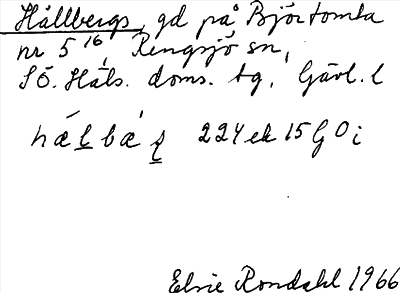 Hållbergs, gd på Björtomta
nr 5 16, Rengsjö sn,
SÖ. Häls. doms. tg, Gävl. l
hælbæ̀ʂ 224 ek 15 G O i
Elsie Rondahl 1966